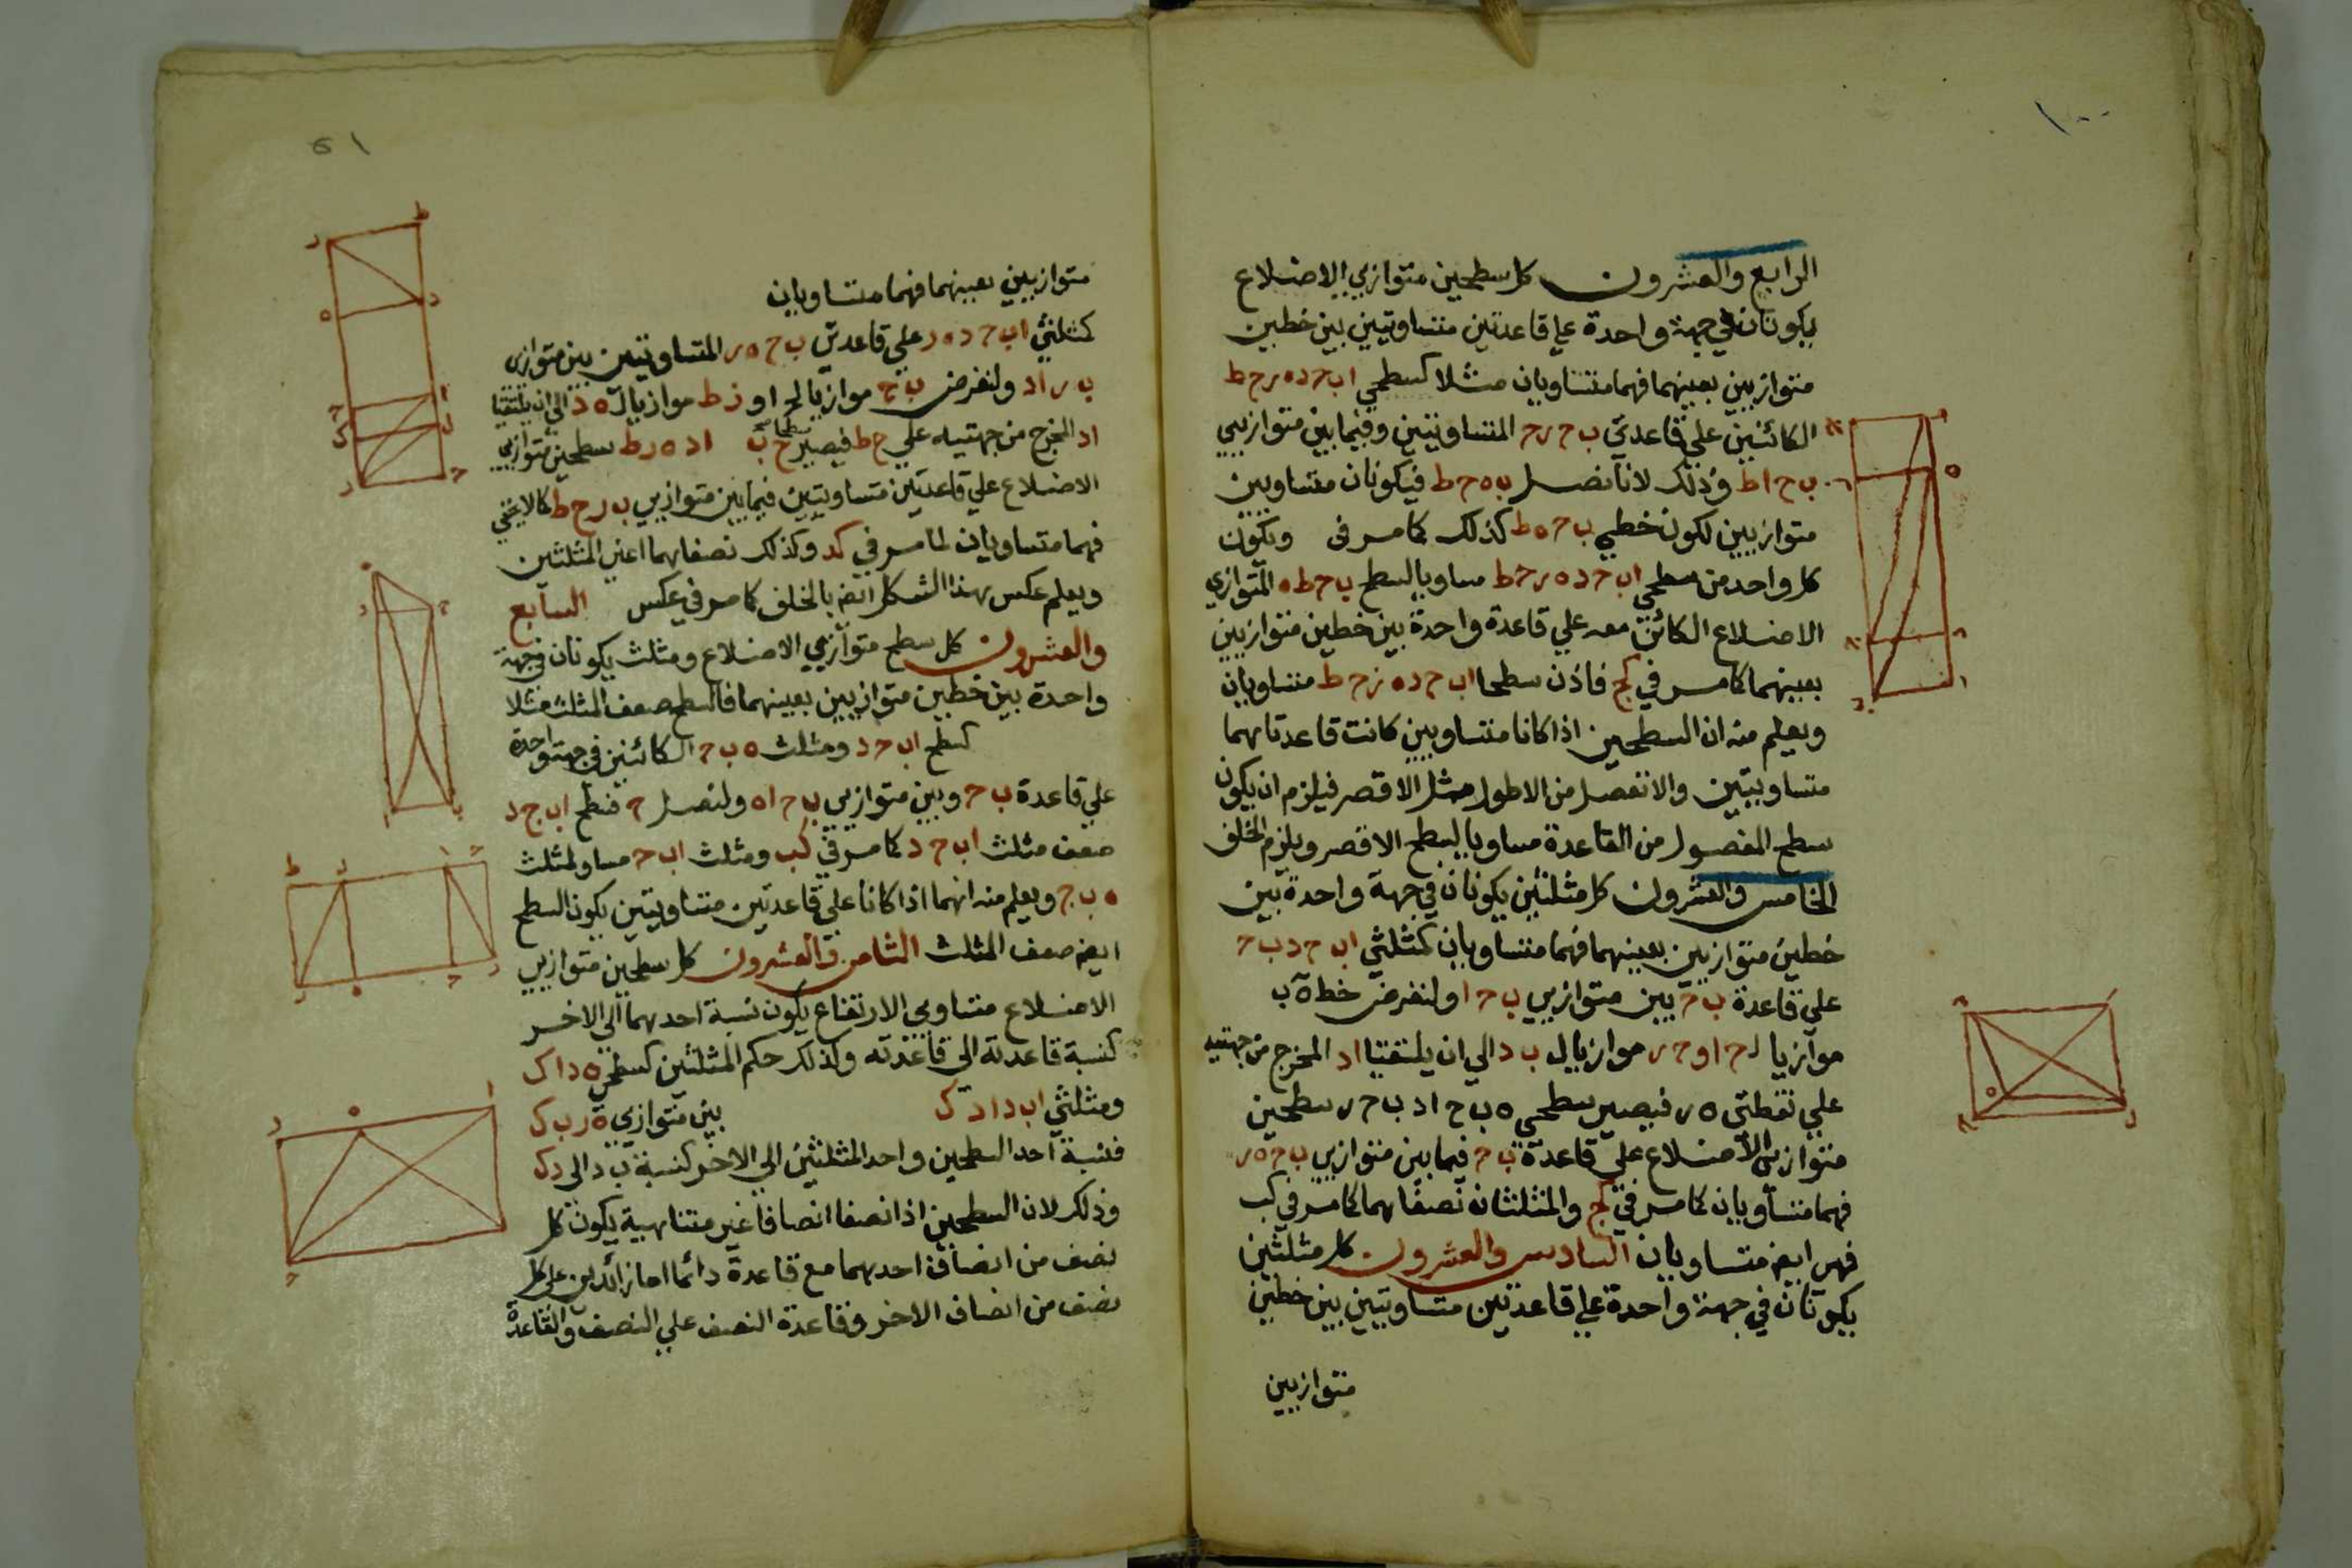 الرابع والعشرون كل سطحين متوازيي الاضلاع
يكونان في جهة واحدة علي قاعدتين متساويتين بين خطين
متوازيين بعينهما فهما متساويان مثلا كسطحي اب ح د ه ر ح ط
الكائنين علي قاعدتي ب ح ر ح المتساويتين وفيما بين متوازيي
ب ح اط وذلك لانا نصل ب ه ح ط فيكونان متساويين
متوازيين لكون خطي ب ح ه ط كذلك كما مر في ويكون
كل واحد من سطحي اب ح د ه ر ح ط مساويا لسطح ب ح ط ه المتوازي
الاضلاع الكائن معه علي قاعدة واحدة بين خطين متوازيين
بعينهما كما مر في كج فاذن سطحا اب ح د ه ز ح ط متساويان
ويعلم منه ان السطحين اذا كانا متساويين كانت قاعدتاهما
متساويتين والا نفصل من الاطول مثل الاقصر فيلزم ان يكون
سطح المفصول من القاعدة مساويا لسطح الاقصر ويلزم الخلف
الخامس والعشرون كل مثلثين يكونان في جهة واحدة بين
خطين متوازيين بعينهما فهما متساويان كمثلثي اب ح د ب ح
علي قاعدة ب ح بين متوازيي ب ح ا ولنفرض خط ه ب
موازيا ل ح ا و ح ر موازيا ل ب د الي ان يلتقيا اد المخرج من جهتيه
علي نقطتي ه ر فيصير سطحي ه ب ح ا د ب ح ر سطحين
متوازيي الاضلاع علي قاعدة ب ح فيما بين متوازيي ب ح ه ر
فهما متساويان كما مر في كج والمثلثان نصفاهما كما مر في كب
فهن ايضا متساويان السادس والعشرون كل مثلثين
يكونان في جهة واحدة علي قاعدتين متساويتين بين خطين
متوازيين
متوازيين بعينهما فهما متساويان
كمثلثي اب ح د ه ر علي قاعدتي ب ح ه ر المتساويتين بين متوازي
ب ر اد ولنفرض ب ح موازيا ل ح ا و ز ط موازيا ل ه د الي ان يلتقيا
اد المخرج من جهتيه علي ح ط فيصير سطحا ح ب اد ه ر ط سطحين متوازيي
الاضلاع علي قاعدتين متساويتين فيما بين متوازيي ب ر ح ط كما لا يخفي
فهما متساويان لما مر في كد وكذلك نصفاهما اعني المثلثين
ويعلم عكس هذا الشكل ايضا بالخلف كما مر في عكس السابع
والعشرون كل سطح متوازيي الاضلاع ومثلث يكونان في جهة
واحدة بين خطين متوازيين بعينهما فالسطح ضعف المثلث مثلا
كسطح اب ح د ومثلث ه ب ح الكائنين في جهة واحدة
علي قاعدة ب ح وبين متوازيي ب ح اه ولنصل ح فسطح اب ج د
ضعف مثلث اب ح د كما مر في كب ومثلث اب ح مساو لمثلث
ه ب ج ويعلم منه انهما اذا كانا علي قاعدتين متساويتين يكون السطح
ايضا ضعف المثلث الثامن والعشرون كل سطحين متوازيي
الاضلاع متساويي الارتفاع يكون نسبة احدهما الي الاخر
كنسبة قاعدته الي قاعدته وكذلك حكم المثلثين كسطحي ه د ا ك
ومثلثي اب د ا د ك بين متوازيي ه ر ب ك
فنسبة احد السطحين واحد المثلثين الي الاخر كنسبة ب د الي د ك
وذلك لان السطحين اذا نصفا انصافا غير متناهية يكون كل
نصف من انصاف احدهما مع قاعدة دائما اما زائدين علي كل
نصف من انصاف الاخر وقاعدة النصف علي النصف والقاعدة